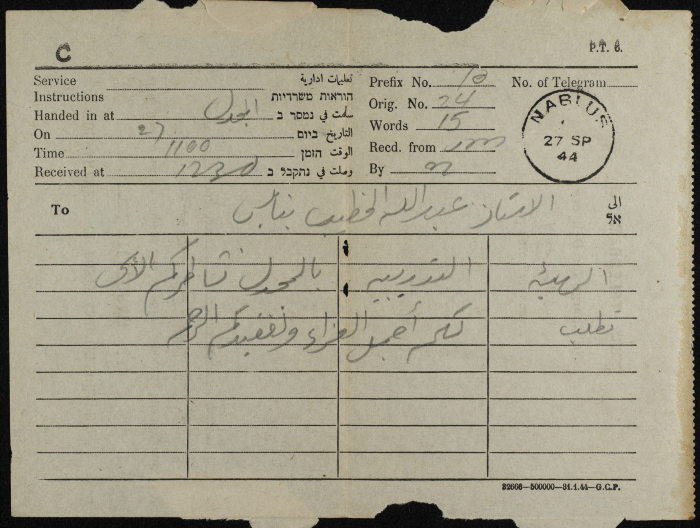 C
P.T. 6.
Service تعليمات ادارية
Instructions הוראות משרדיות
Handed in at المجدل سلمت في נמסר ב
On 27 التاريخ ביום
Time 1100 الوقت הזמן
Received at 1230 وصلت في נתקבל ב
Prefix No. No. of Telegram
Orig. No. 24
Words 15
Recd. from
By
NABLUS
27 SP
44
To الاستاذ عبد الله الخطيب بنابلس الى אל
الهيئة التدريسية بالمجدل تشاطركم الأسى
تطلب لكم أجمل العزاء ولفقيدكم الرحمة
32666—500000—31.1.44—G.C.P.